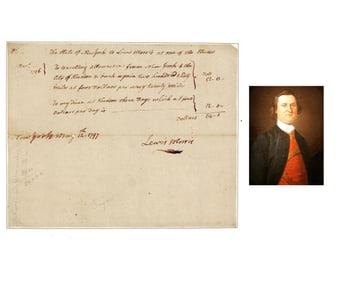 The State of New York to Lewis Morris as one of the
1796
To travelling allowance from New York to the
City of Hudson & back again two hundred & sixty
miles at four dollars per every twenty miles
52.0
To my time at Hudson three days which at four
dollars per day is
12.0
Dollars 64.0
New York May 12th 1797
Lewis Morris